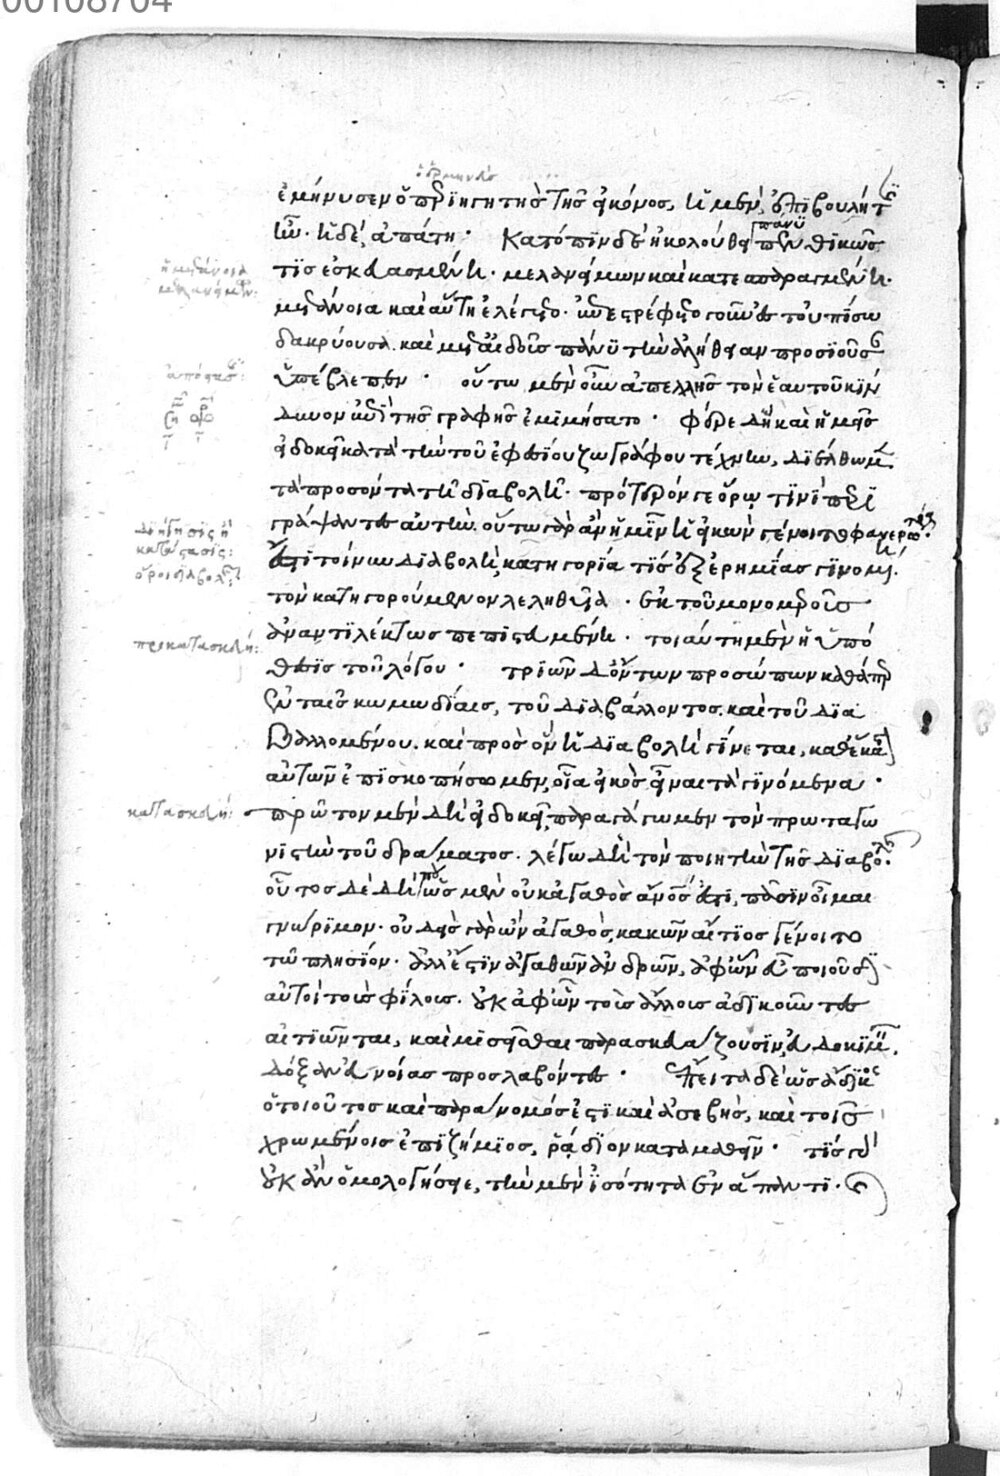 00108704
ὁ ἑρμηνεὺς
ἐμήνυσεν ὁ περιηγητὴς τῆς εἰκόνος, ἡ μὲν, ἐπιβουλή τις
ἦν· ἡ δὲ, ἀπάτη· κατόπιν δὲ ἠκολούθει πάνυ πενθικῶς
τις ἐσκευασμένη· μελανείμων καὶ κατεσπαραγμένη·
ἡ μετάνοια
μελανείμων:
μετάνοια καὶ αὕτη ἐλέγετο· ἐπεστρέφετο γοῦν ἐς τοὐπίσω
δακρύουσα. καὶ μετ' αἰδοῦς πάνυ τὴν ἀλήθειαν προσιοῦσαν
ὑπέβλεπεν· οὕτω μὲν οὖν ἀπελλῆς τὸν ἑαυτοῦ κίν
δυνον ἐπὶ τῆς γραφῆς ἐμιμήσατο· φέρε δὴ καὶ ἡμεῖς
εἰ δοκεῖ κατὰ τὴν τοῦ ἐφεσίου ζωγράφου τέχνην, διέλθωμεν
τὰ προσόντα τῇ διαβολῇ· πρότερόν γε ὅρῳ τινὶ περι
γράψαντες αὐτήν. οὕτω γὰρ ἂν ἡμῖν ἡ εἰκὼν γένοιτο φανερωτέρα·
διήγησις ἢ
κατάστασις:
ὅροι διαβολῆς:
ἔστι τοίνυν διαβολὴ, κατηγορία τις ἐξ ἐρημίας γινομένη.
τὸν κατηγορούμενον λεληθυῖα· ἐκ τοῦ μονομεροῦς
ἀναντιλέκτως πεπιστευμένη· τοιαύτη μὲν ἡ ὑπό
προκατασκευή:
θεσις τοῦ λόγου· τριῶν δ' ὄντων προσώπων καθάπερ
ἐν ταῖς κωμῳδίαις, τοῦ διαβάλλοντος. καὶ τοῦ δια
βαλλομένου. καὶ πρὸς ὃν ἡ διαβολὴ γίνεται, καθ' ἕκαστον
αὐτῶν ἐπισκοπήσωμεν, οἷα εἰκὸς εἶναι τὰ γινόμενα·
κατασκευή:
πρῶτον μὲν δὴ εἰ δοκεῖ, παραγάγωμεν τὸν πρωταγω
νιστὴν τοῦ δράματος. λέγω δὲ τὸν ποιητὴν τῆς διαβολῆς·
οὗτος δὲ δὴ ὅτι μὲν οὐκ ἀγαθὸς ἄνθρωπός ἐστι, πᾶσιν οἶμαι
γνώριμον· οὐδεὶς γὰρ ἂν ἀγαθὸς, κακῶν αἴτιος γένοιτο
τῷ πλησίον· ἀλλ' ἔστιν ἀγαθῶν ἀνδρῶν, ἀφ' ὧν εὖ ποιοῦσιν
αὐτοὶ τοὺς φίλους. οὐκ ἀφ' ὧν τοὺς ἄλλους ἀδικοῦντες
αἰτιῶνται, καὶ μισεῖσθαι παρασκευάζουσιν, εὐδοκιμεῖν,
δόξαν εὐνοίας προσλαβόντας· ἔπειτα δὲ ὡς ἄδικος
ὁ τοιοῦτος καὶ παράνομός ἐστι καὶ ἀσεβὴς, καὶ τοῖς
χρωμένοις ἐπιζήμιος, ῥᾴδιον καταμαθεῖν· τίς γὰρ
οὐκ ἂν ὁμολογήσειε, τὴν μὲν ἰσότητα ἐν ἅπαντι·